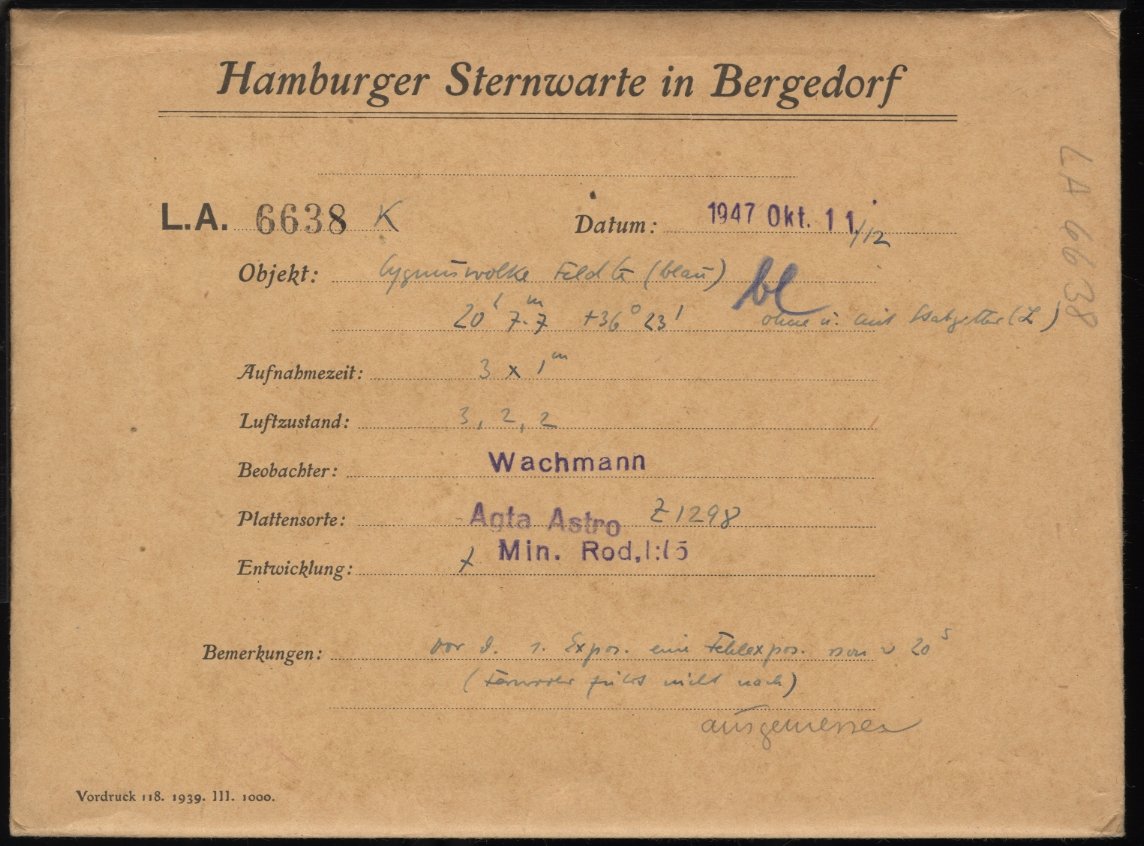 Hamburger Sternwarte in Bergedorf
L.A. 6638 K Datum: 1947 Okt. 11/12
LA 6638
Objekt: Cygnuswolke Feld (blau) bl
20h 7.m7 +36° 23' ohne u. mit (L)
Aufnahmezeit: 3 x 1m
Luftzustand: 3, 2, 2
Beobachter: Wachmann
Plattensorte: Agfa Astro Z 1298
Entwicklung: Min. Rod, 1:15
Bemerkungen: vor d. 1. Expos. eine Fehlexpos. von 20s
(Fernrohr führt nicht nach)
ausgemessen
Vordruck 118. 1939. III. 1000.